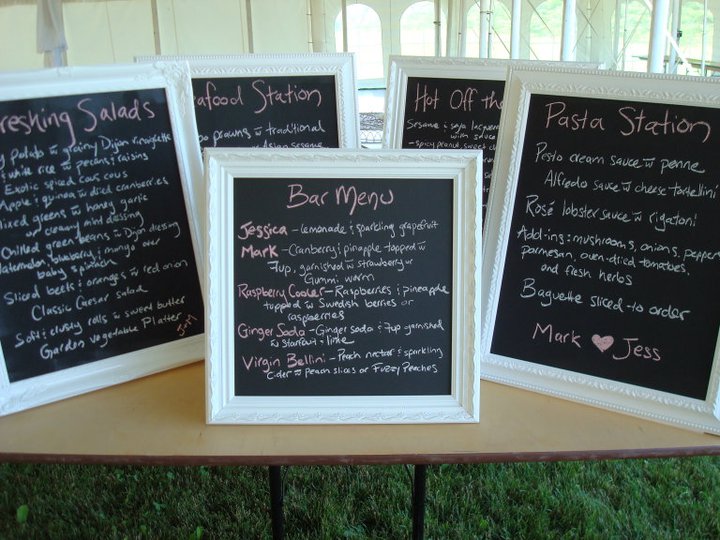 freshing Salads
potato w grainy Dijon vinaigrette
& white rice w pecans & raisins
Exotic spiced cous cous
Apple & quinoa w dried cranberries
Mixed greens w honey garlic
or creamy mind dressing
Chilled green beans w Dijon dressing
Watermelon, blueberry & mango over
baby spinach
Sliced beets & oranges w red onion
Classic Caesar salad
Soft & crusty rolls w sweet butter
Garden vegetable Platter
J&M
afood Station
prawns w traditional
or Asian sesame
Hot Off the
Sesame & soja
with sauce
- spicy peanut, sweet
Bar Menu
Jessica - Lemonade & sparkling grapefruit
Mark - Cranberry & pineapple topped w
7up, garnished w strawberry or
Gummi worm
Raspberry Cooler - Raspberries & pineapple
topped w Swedish berries or
raspberries
Ginger Soda - Ginger soda & 7up garnished
w starfruit & lime
Virgin Bellini - Peach nectar & sparkling
Cider w peach slices or Fuzzy Peaches
Pasta Station
Pesto cream sauce w penne
Alfredo sauce w cheese tortellini
Rosé lobster sauce w rigatoni
Add-ins: mushrooms, onions, peppers
parmesan, oven-dried tomatoes,
and fresh herbs
Baguette sliced-to order
Mark ♥ Jess